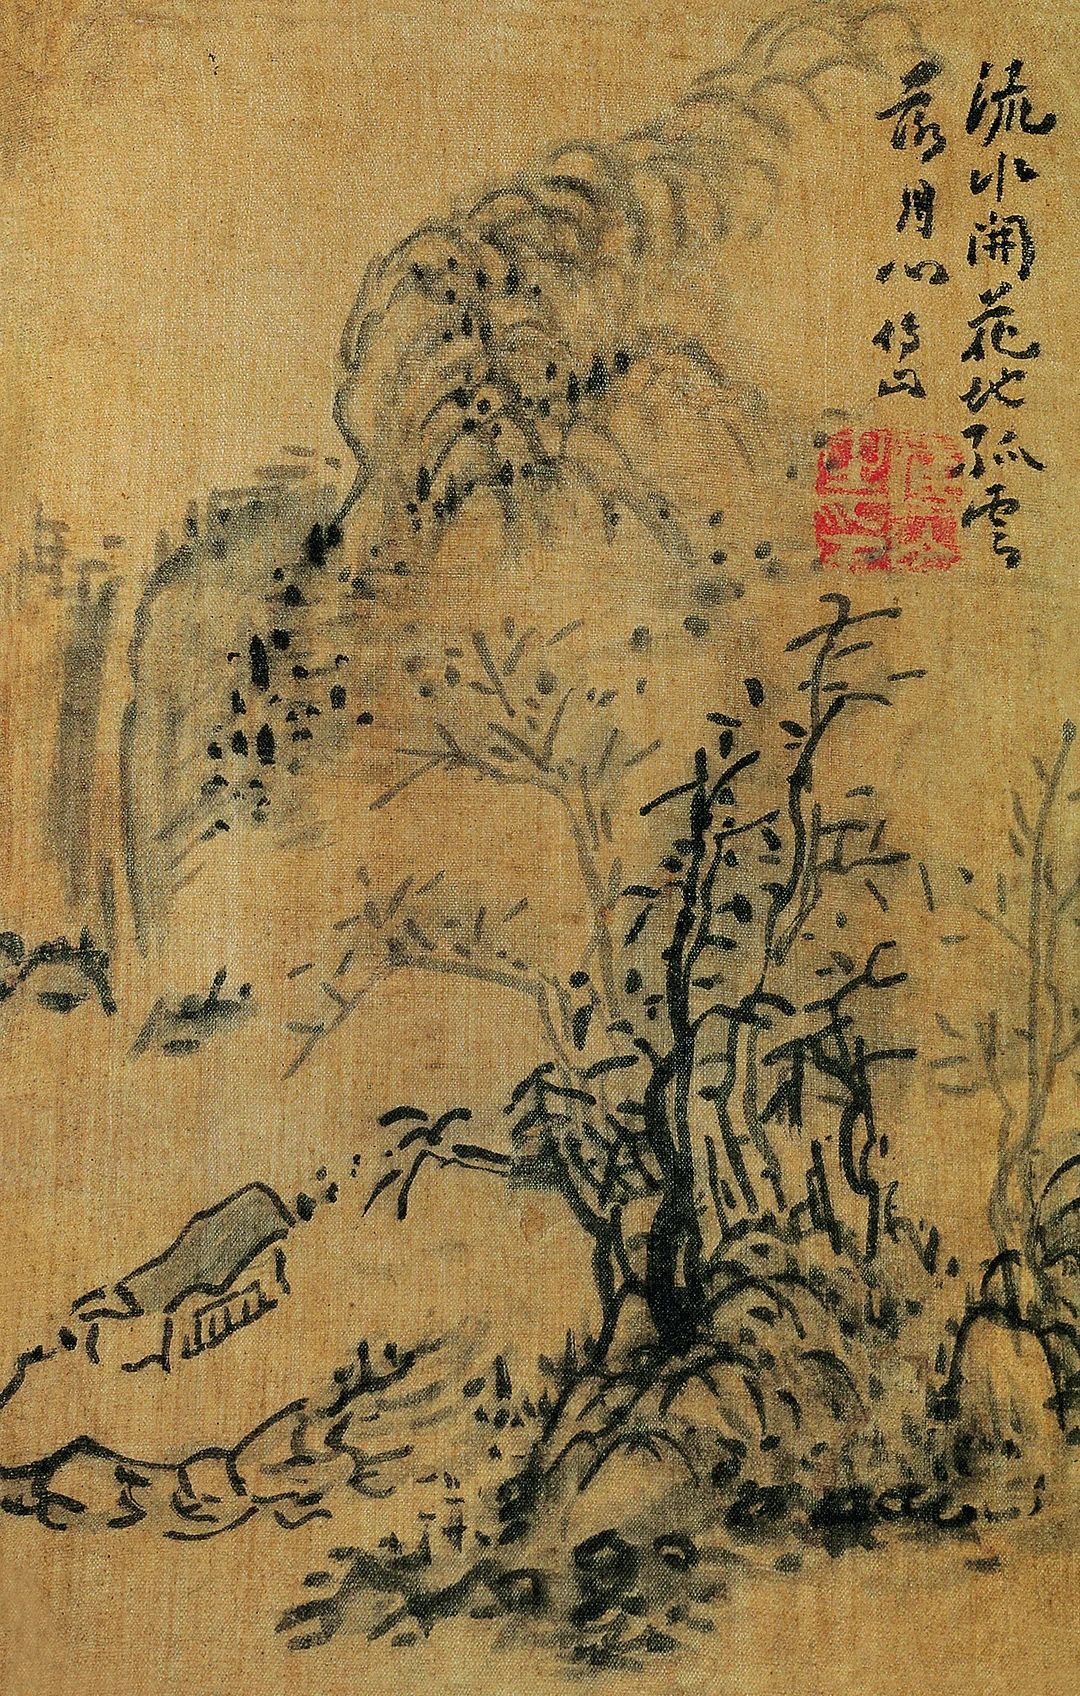 流水開花地孤雲
落月心傅山